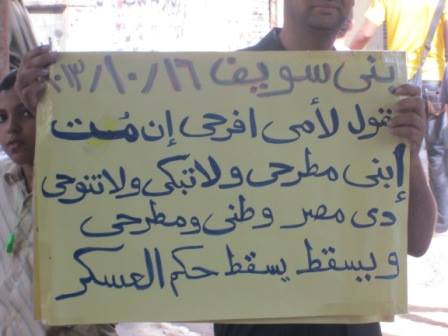 بنى سويف ٢٠١٣/١٠/١٦
بقول لأمى افرحى إن مُت
إبنى مطرحى ولا تبكى ولا تنوحى
دى مصر وطنى ومطرحى
ويسقط يسقط حكم العسكر